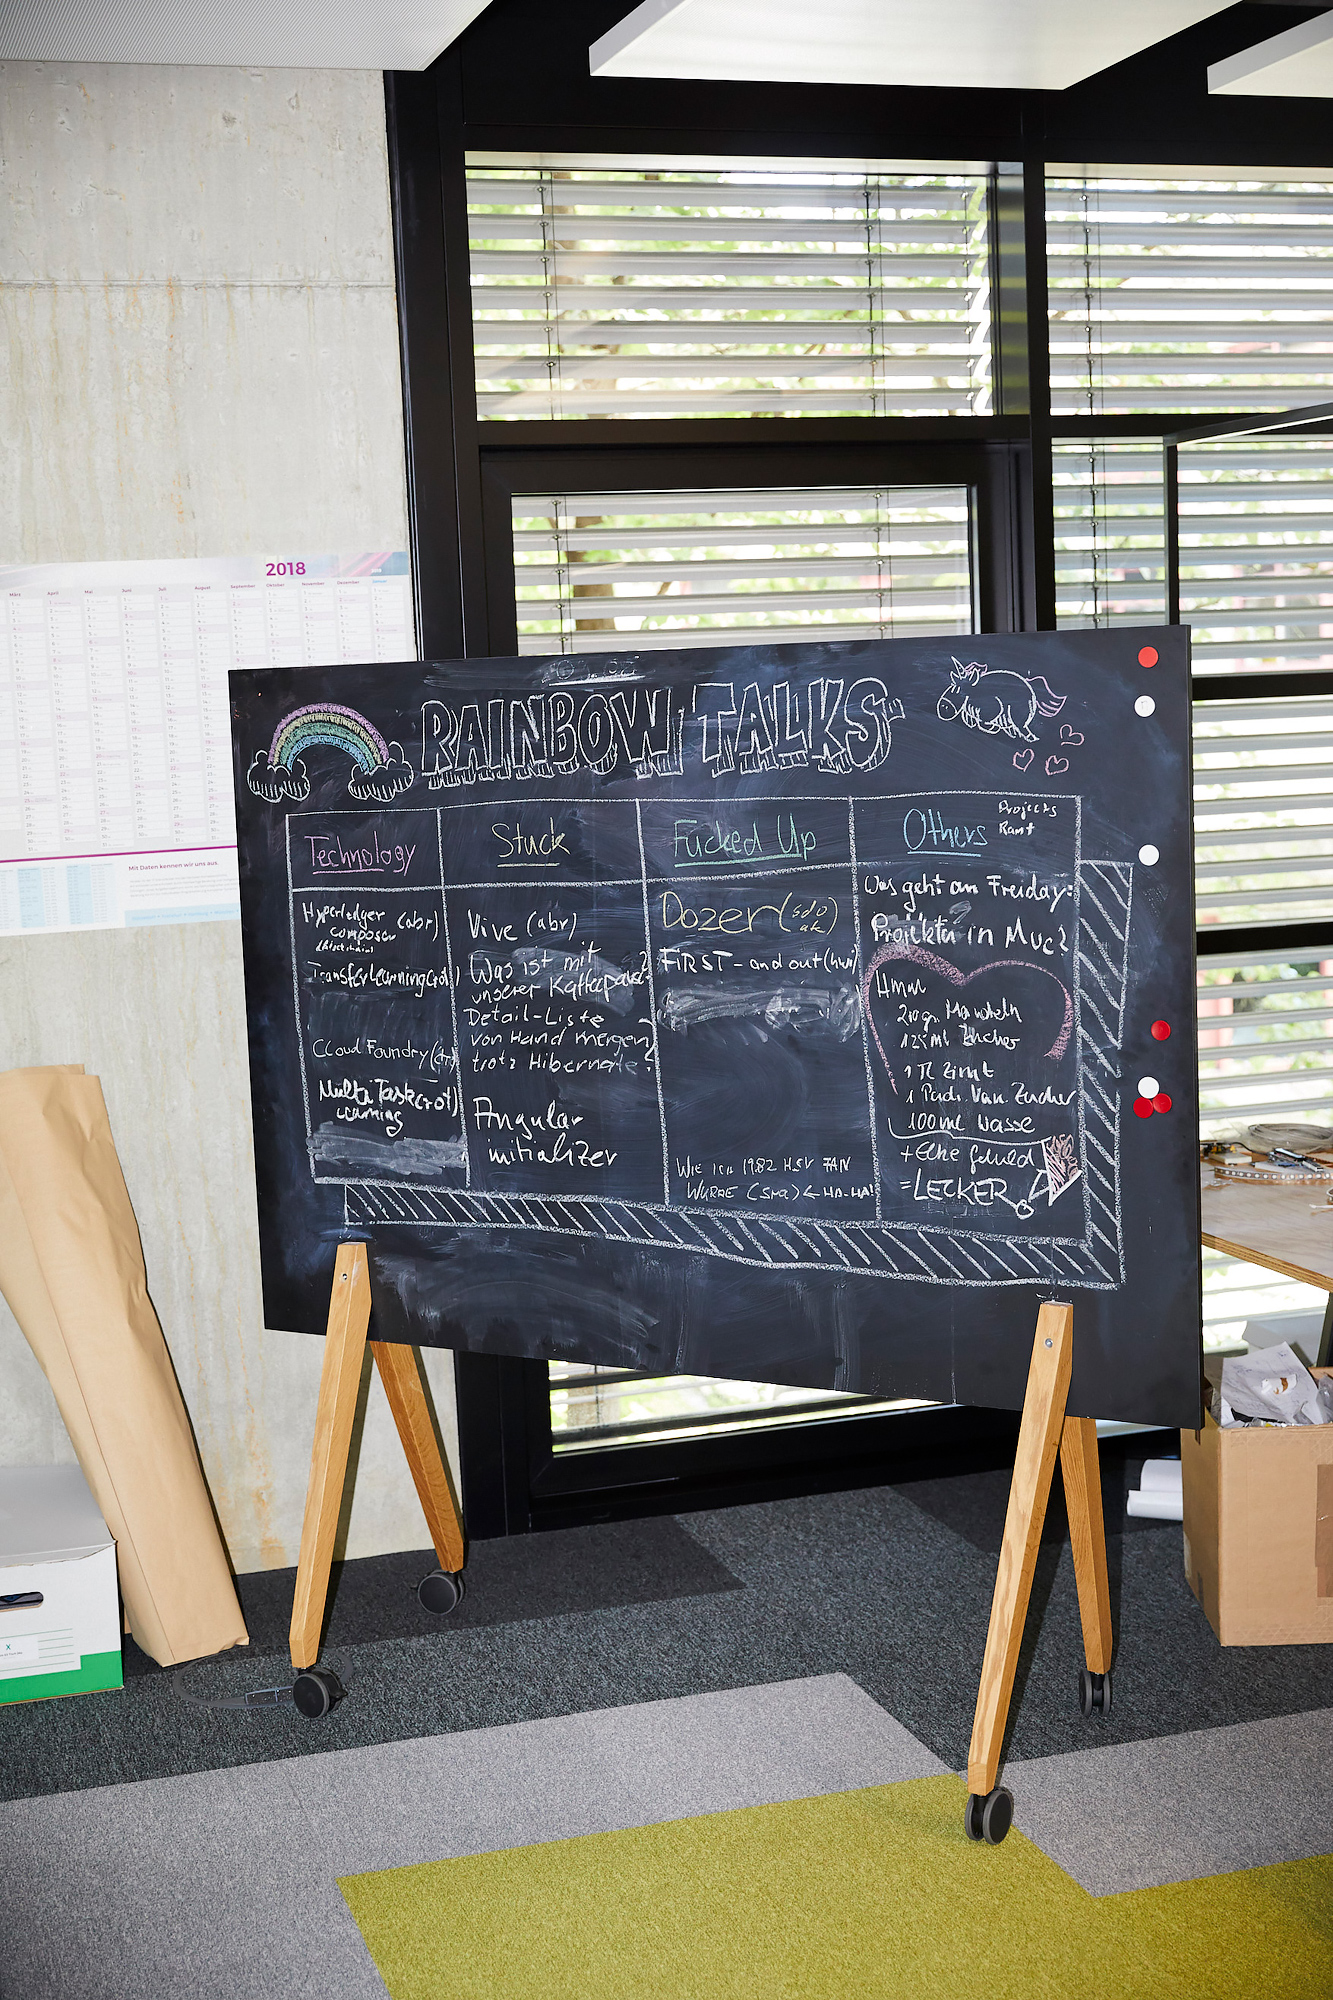 2018
März April Mai Juni Juli August September Oktober November Dezember Januar
Mit Daten kennen wir uns aus.
RAINBOW TALKS
Technology
Hyperledger (abr)
composer
TransferLearning(crot)
Cloud Foundry
Multi Task(crot)
Learning
Stuck
Vive (abr)
Was ist mit
unserer Kaffepause?
Detail-Liste
von Hand mergen
trotz Hibernate?
Angular
initializer
Fucked Up
Dozer (sdo
FIRST - and out (hwi)
WIE ICH 1982 HSV FAN
WURDE (sma) ← HA-HA!
Others
Projects
Rant
Was geht am Freiday:
Projekte in Muc?
4mal
200g Mandeln
125ml Zucker
1 TL Zimt
1 Pack. Van. Zucker
100ml Wasser
+ Eine Geduld
= LECKER